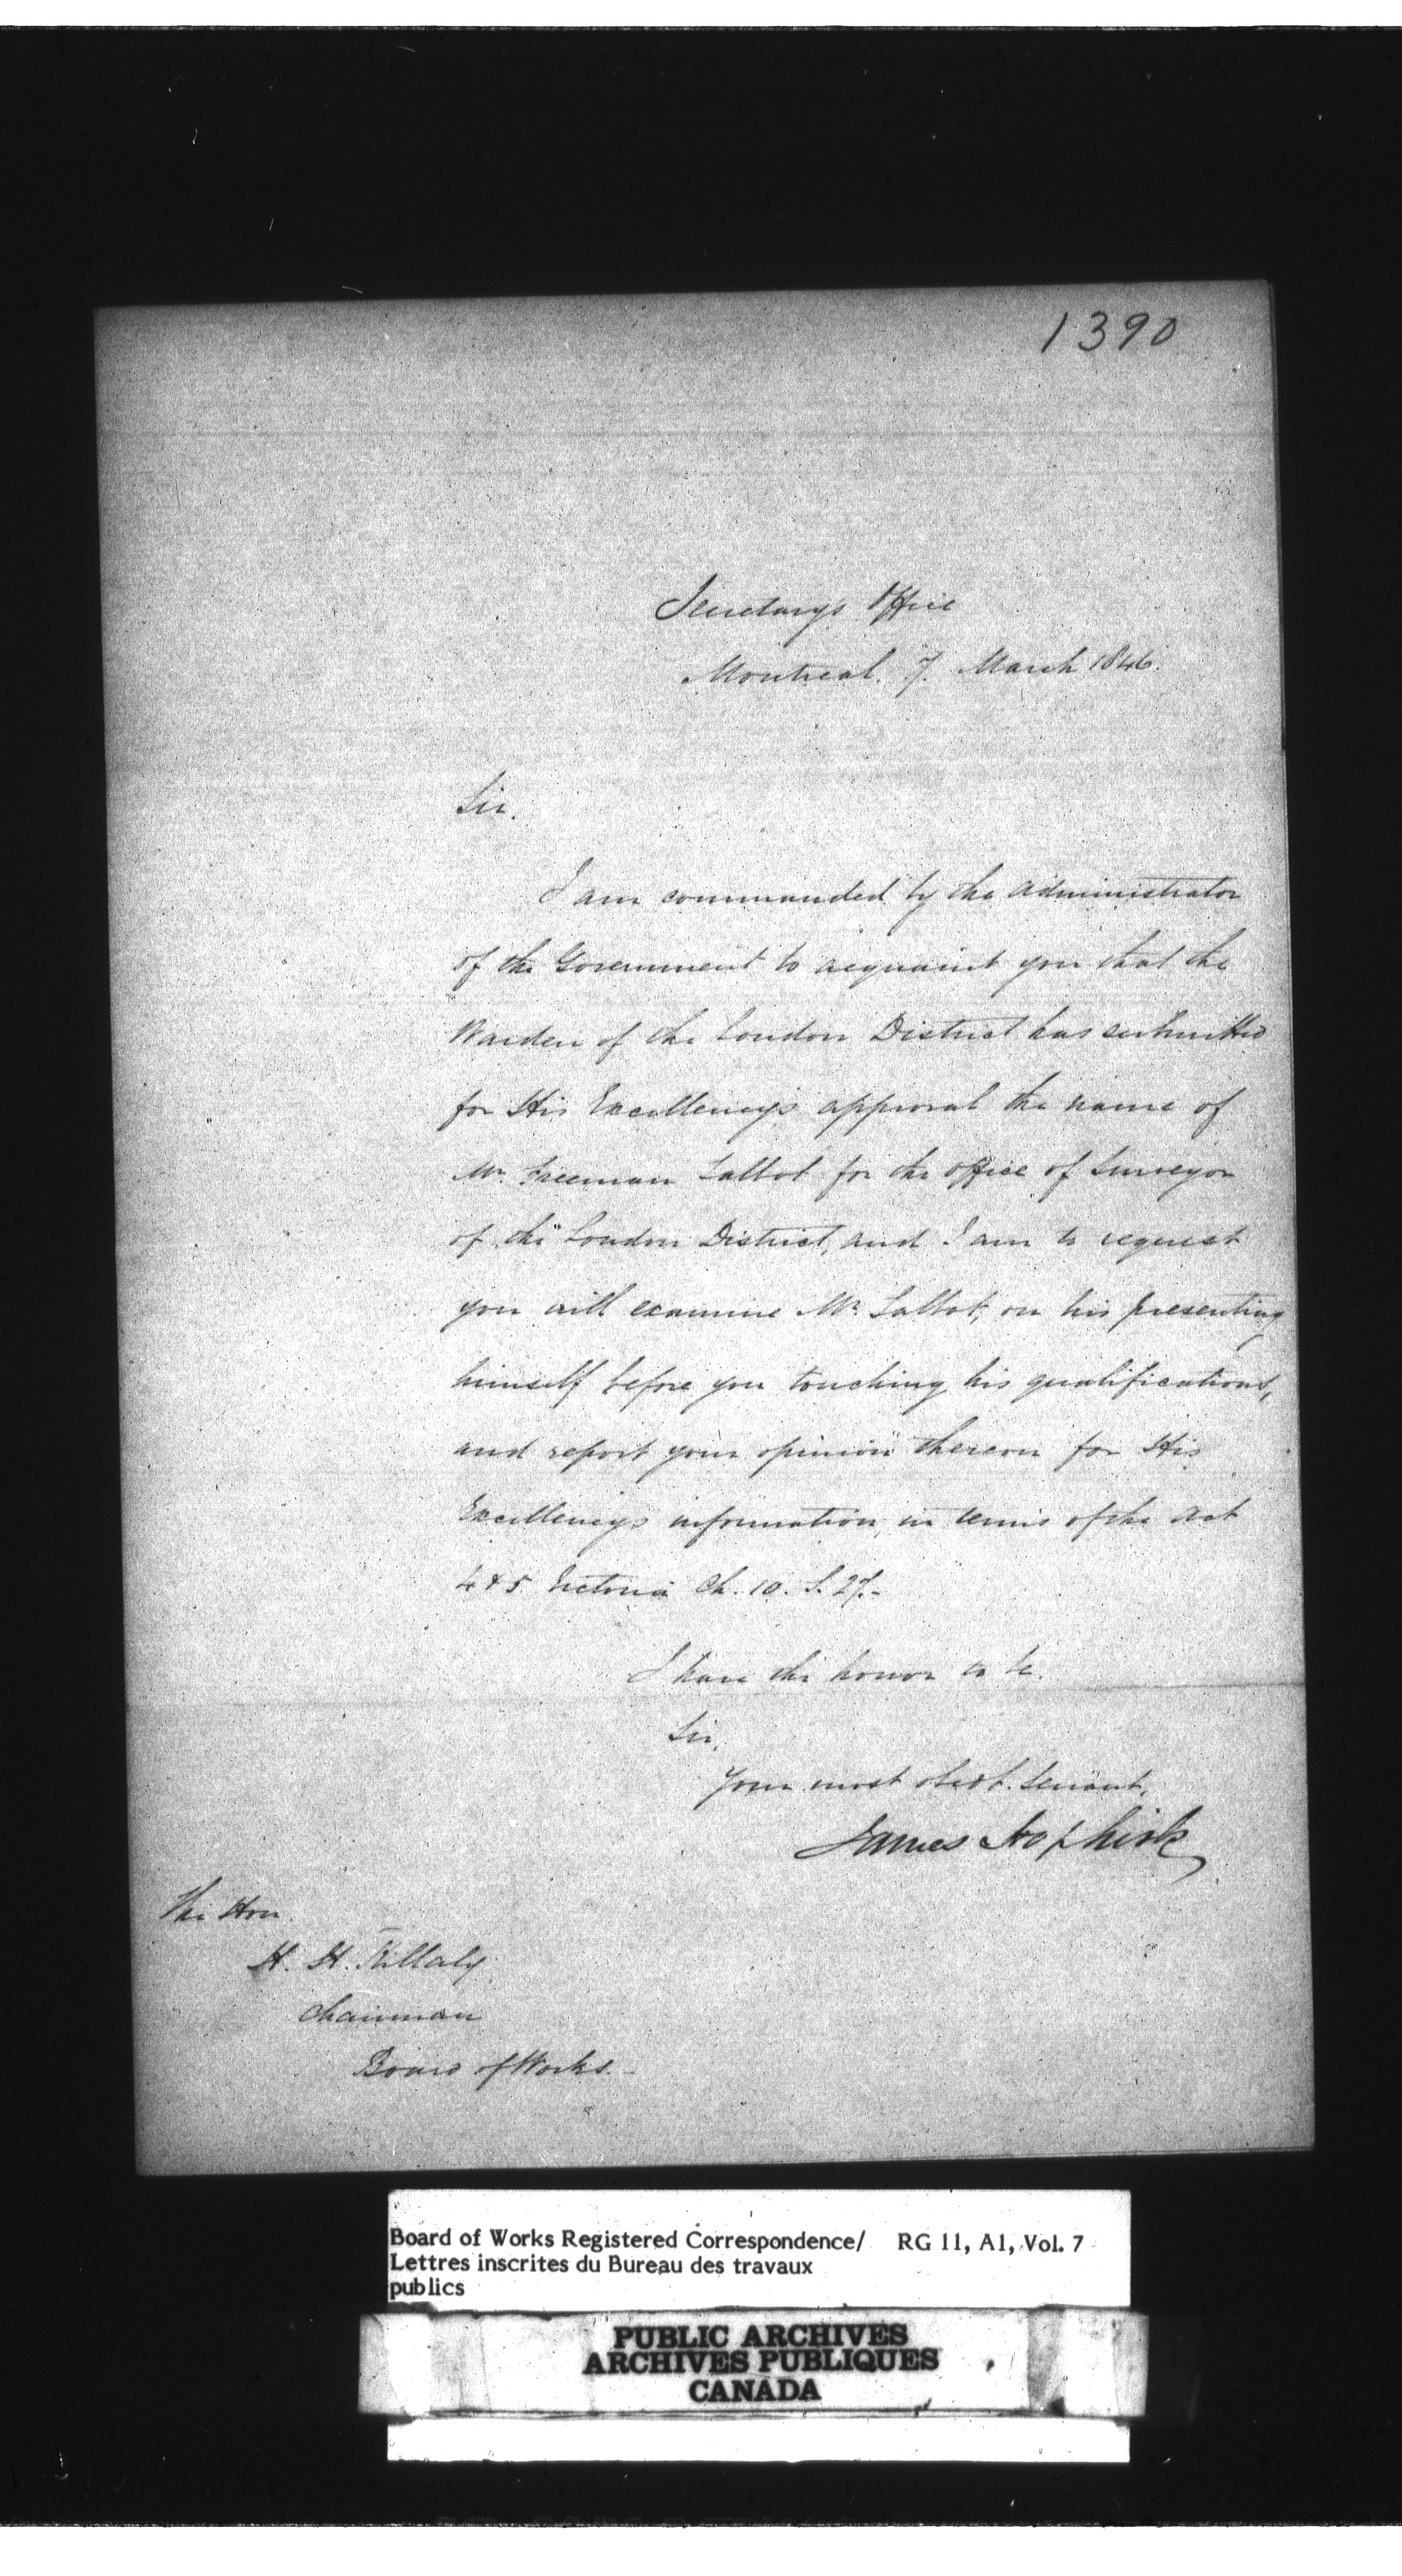 1390
Secretary's Office
Montreal. 7. March 1846.
Sir.
I am commanded by the Administrator
of the Government to acquaint you that the
Warden of the London District has submitted
for His Excellency's approval the name of
Mr. Freeman Talbot for the office of Surveyor
of the London District, and I am to request
you will examine Mr. Talbot, on his presenting
himself before you touching his qualifications,
and report your opinion thereon for His
Excellency's information in terms of the Act
4 & 5 Victoria Ch. 10. S. 27.-
I have the honor to be.
Sir,
Your most obedt. Servant,
James Hopkirk
The Hon.
H. H. Killaly
Chairman
Board of Works.-
Board of Works Registered Correspondence/ RG 11, A1, Vol. 7
Lettres inscrites du Bureau des travaux
publics
PUBLIC ARCHIVES
ARCHIVES PUBLIQUES
CANADA